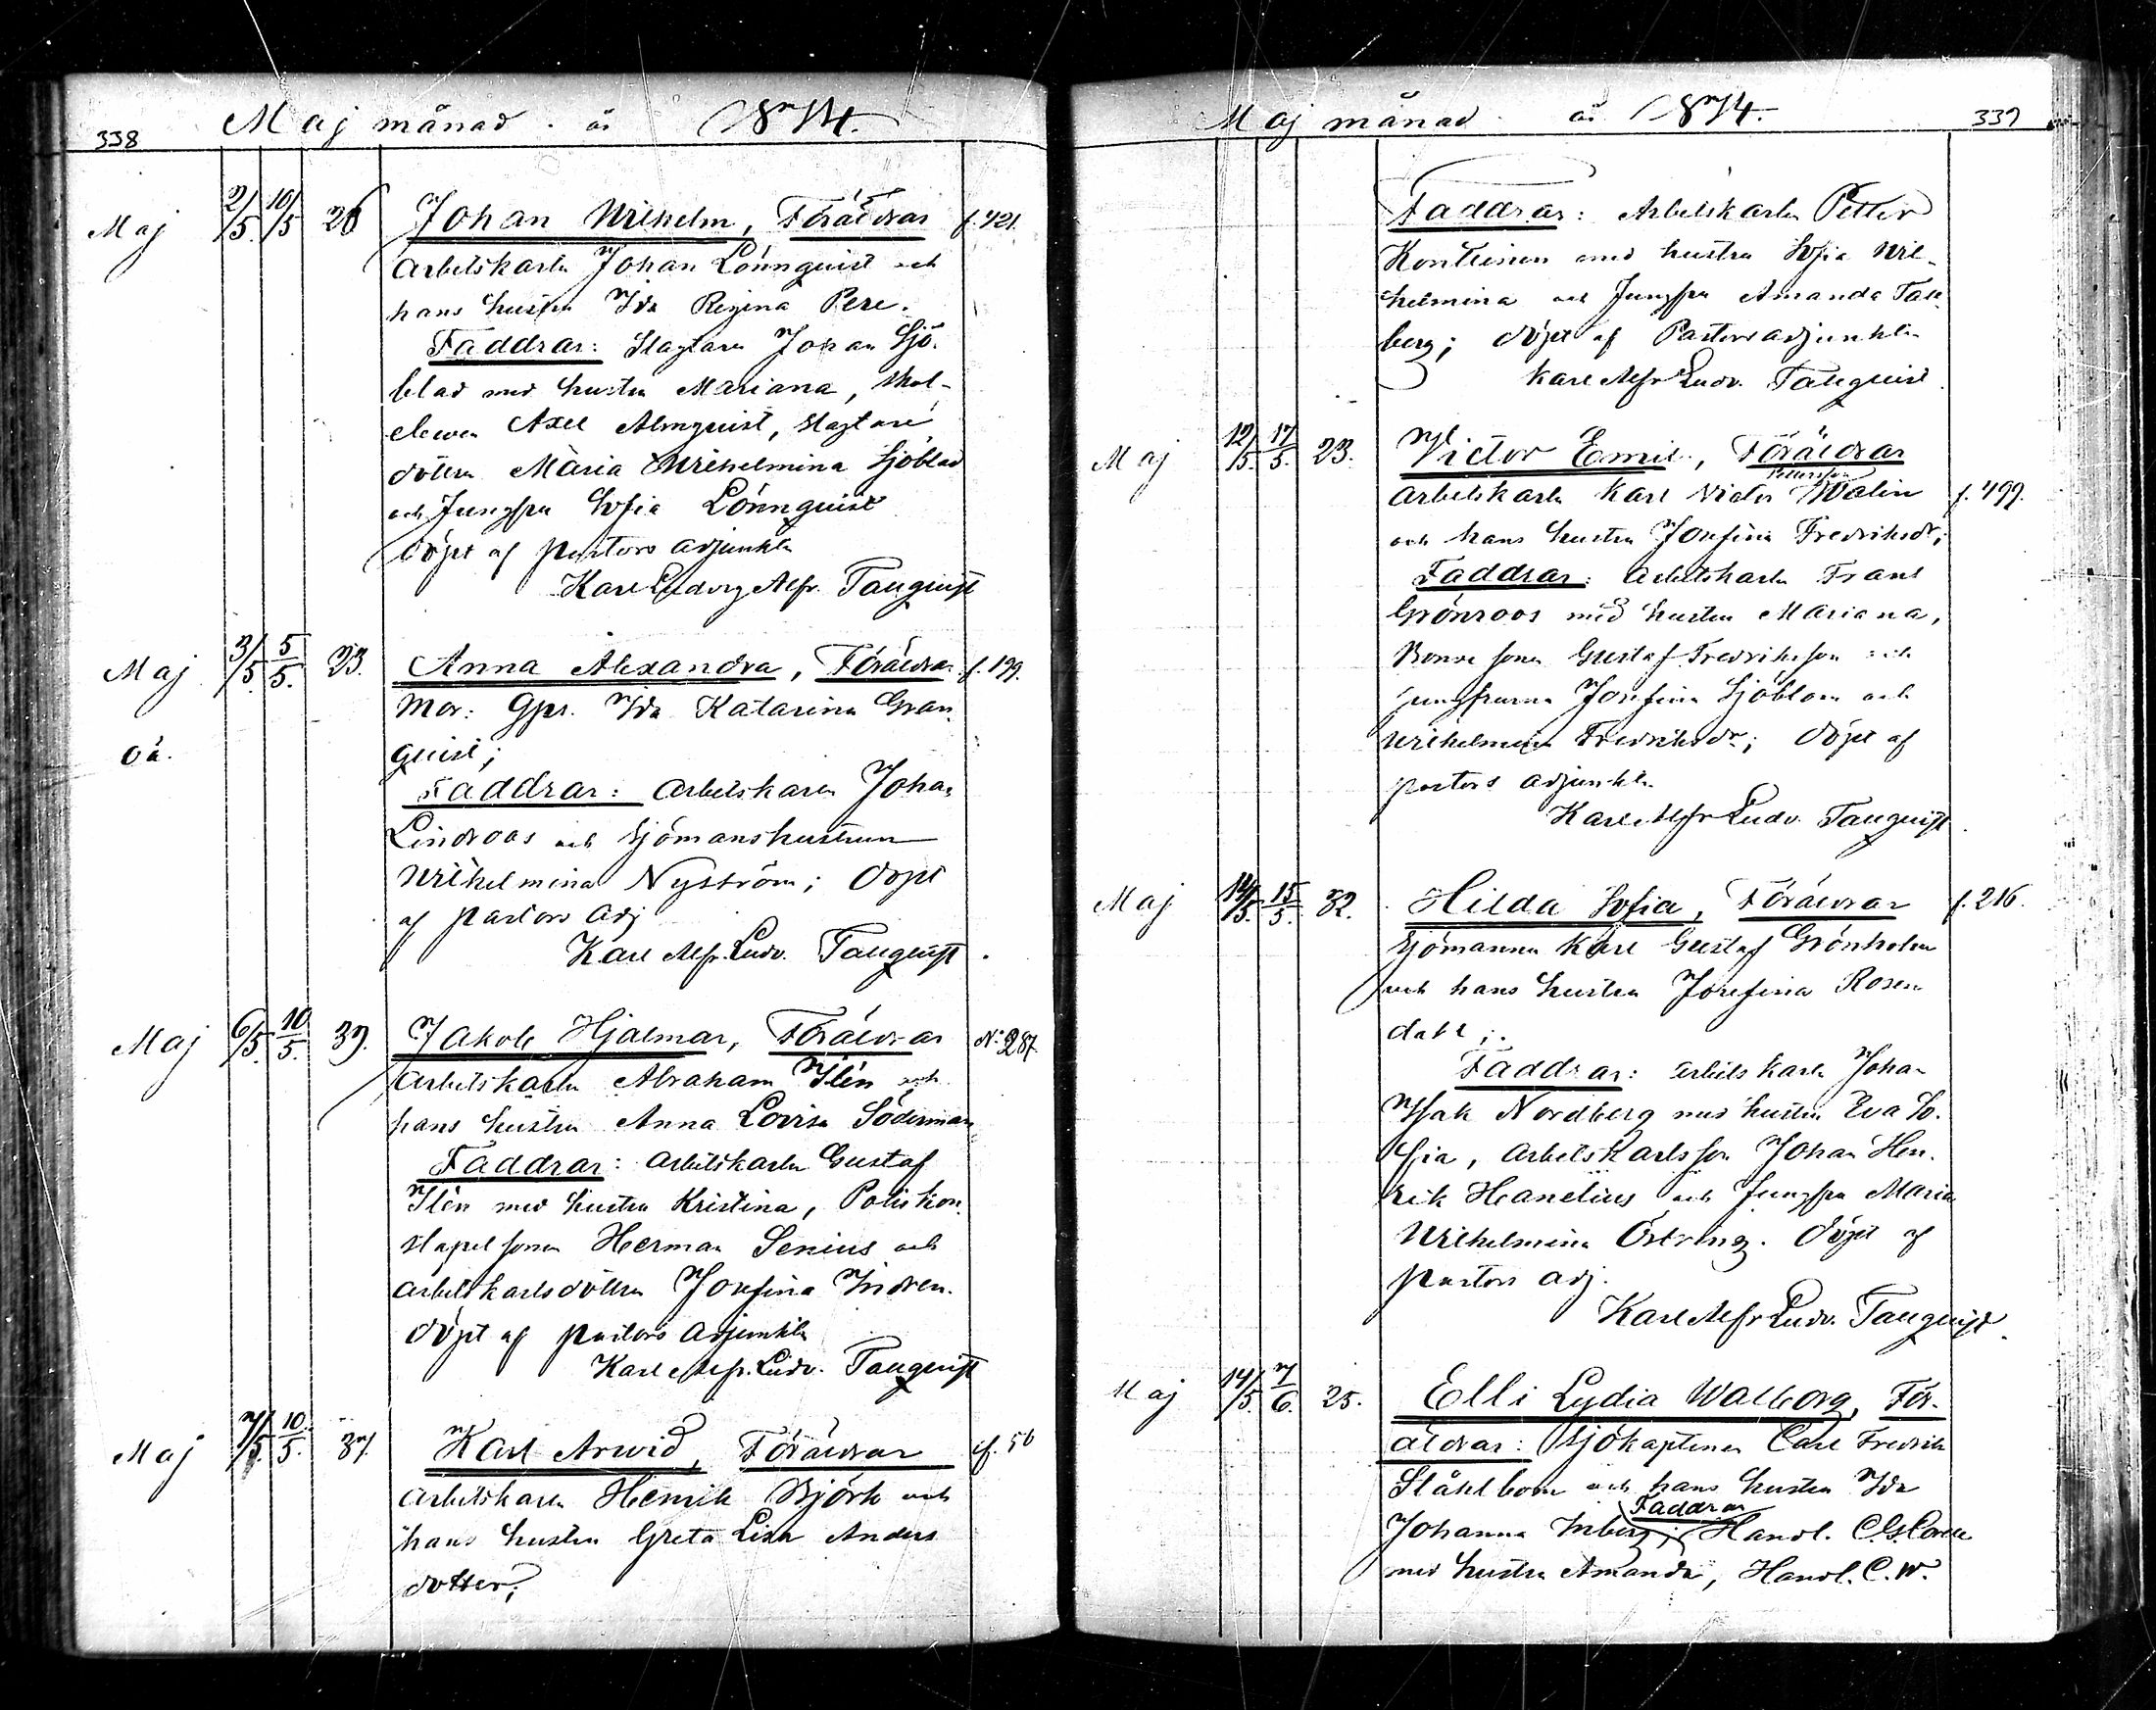 338 Maj månad. år 1874.
Maj 2/5. 10/5 26 Johan Wilhelm, Föräldrar f. 421.
arbetskarln Johan Lönnquist och
hans hustru Ida Regina Pere.
Faddrar: Slagtaren Johan Sjö-
blad med hustru Mariana, skol-
eleven Axel Almquist, slagtare
dottren Maria Wilhelmina Sjöblad
och Jungfru Sofia Lönnquist
döpt af pastors adjunkten
Karl Ludvig Alfr. Tauquist
Maj 3/5. 5/5. 23. Anna Alexandra, Föräldrar f. 199.
oä. Mor: Gpr. Ida Katarina Gran-
quist;
Faddrar: arbetskarln Johan
Lindroos och sjömanshustrun
Wilhelmina Nyström; döpt
af pastors adj
Karl Alfr. Ludv. Tauquist.
Maj 6/5. 10/5. 39. Jakob Hjalmar, Föräldrar No 287
arbetskarln Abraham Ilén och
hans hustru Anna Lovisa Söderman
Faddrar: arbetskarln Gustaf
Ilén med hustru Kristina, Poliskon-
stapelsonen Herman Senius och
arbetskarlsdottren Josefina Indren.
döpt af pastors adjunkten
Karl Alfr. Ludv. Tauquist
Maj 7/5. 10/5. 37. Karl Arwid, Föräldrar f. 56
arbetskarln Henrik Björk och
hans hustru Greta Lisa Anders
dotter;
Maj månad år 1874. 339
Faddrar: Arbetskarln Petter
Konteinen med hustru Sofia Wil-
helmina och Jungfru Amanda Tall-
berg; döpt af Pastorsadjunkten
Karl Alfr Ludv. Tauquist.
Maj 12/5. 17/5. 23. Victor Emil, Föräldrar
Pettersson
arbetskarln Karl Victor Walin f. 499.
och hans hustru Josefina Fredriksdr;
Faddrar: arbetskarln Frans
Grönroos med hustru Mariana,
Bonde sonen Gustaf Fredriksson och
jungfruarna Josefina Sjöblom och
Wilhelmina Fredriksdr; döpt af
pastors adjunkten
Karl Alfr Ludv. Tauquist.
Maj 14/5. 15/5. 32. Hilda Sofia, Föräldrar f. 216.
sjömannen Karl Gustaf Grönholm
och hans hustru Josefina Rosen-
dahl;
Faddrar: arbetskarln Johan
Isak Nordberg med hustru Eva So-
fia, Arbetskarlsson Johan Hen-
rik Hanelius och Jungfru Maria
Wilhelmina Östring. döpt af
pastors adj.
Karl Alfr Ludv. Tauquist.
Maj 14/5. 7/6. 25. Elli Lydia Walborg, För-
äldrar: Sjökaptenen Carl Fredrik
Ståhlbom och hans hustru Ida
Faddrar
Johanna Inberg; Handl. C. G.
med hustru Amanda, Handl. C. W.